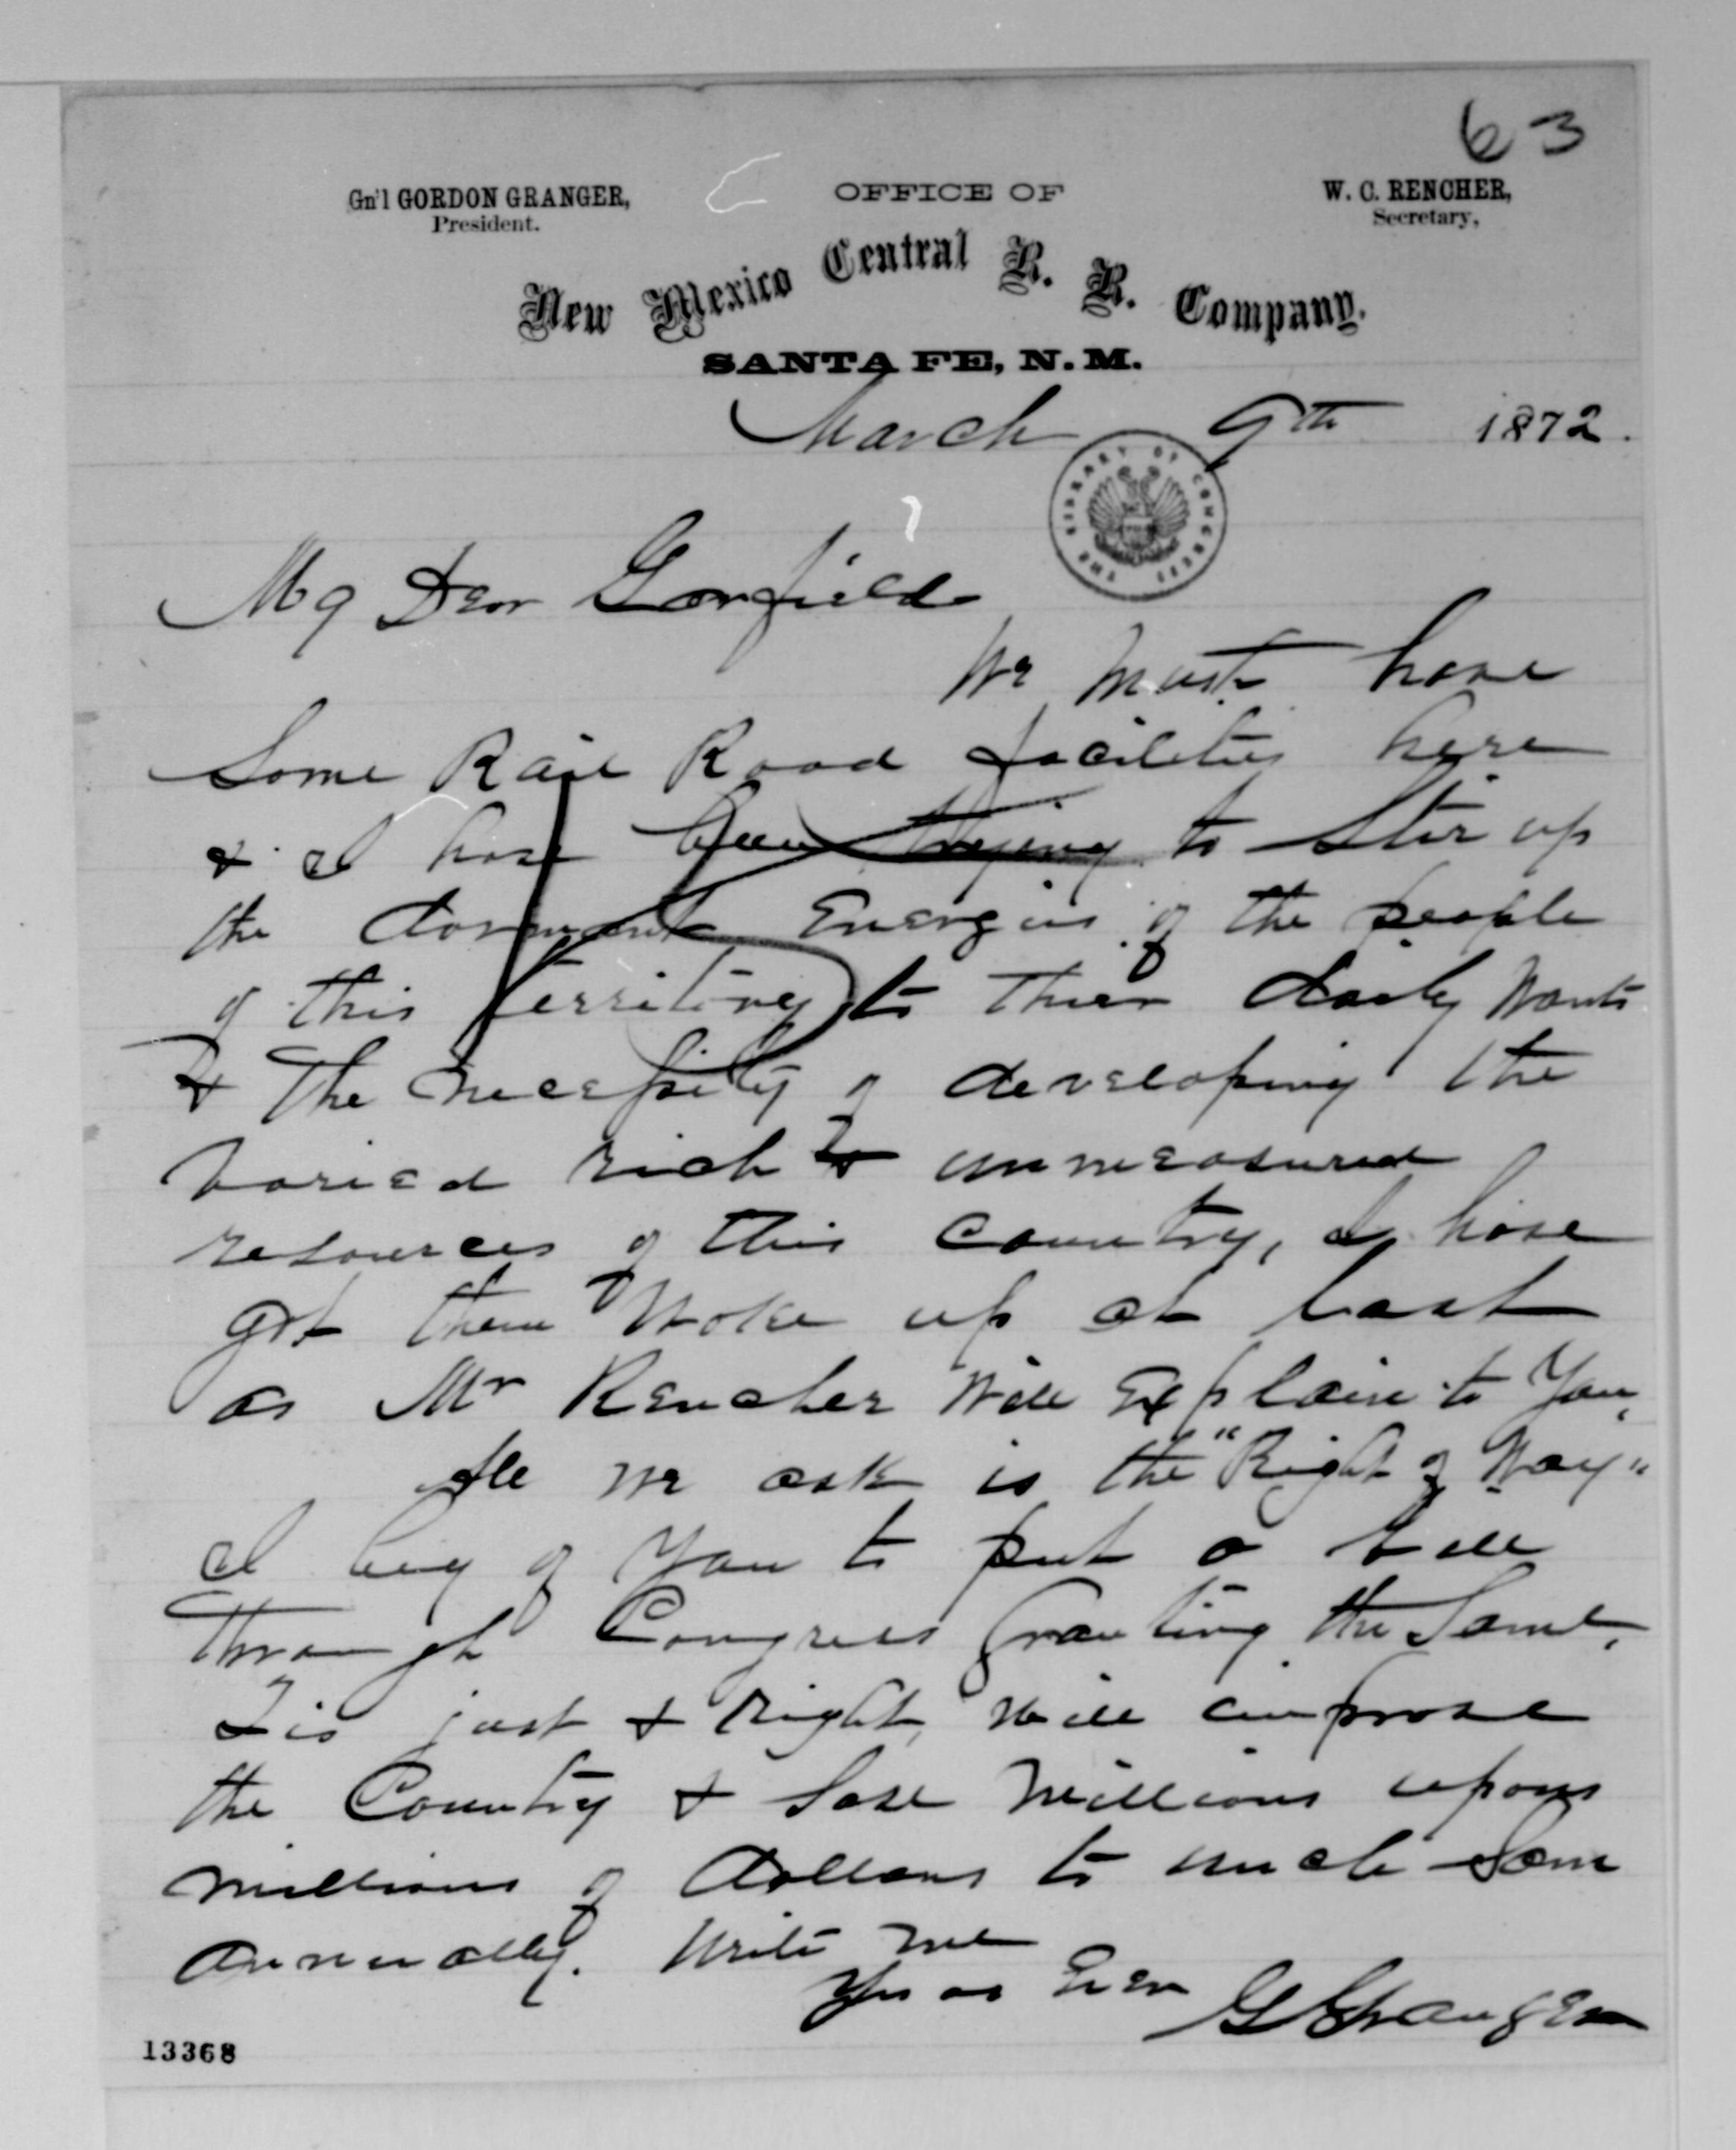 63
Gn'l GORDON GRANGER,
President.
OFFICE OF
W. C. RENCHER,
Secretary,
New Mexico Central R. R. Company.
SANTA FE, N. M.
March 9th 1872.
THE LIBRARY OF CONGRESS
My Dear Garfield
We must have
Some Rail Road facilities here
& I have been trying to Stir up
the dormant Energies of the people
of this territory to thier daily Wants
& the necessity of developing the
varied rich & unmeasured
resources of this Country, I have
got them Woke up at last
as Mr Rencher Will Explain to You,
All we ask is the "Right of Way"
I beg of You to put a bill
through Congress granting the Same,
Tis just & right, Will improve
the Country & Save Millions upon
millions of dollars to uncle Sam
annually. Write me
Yrs as Ever GGranger
13368